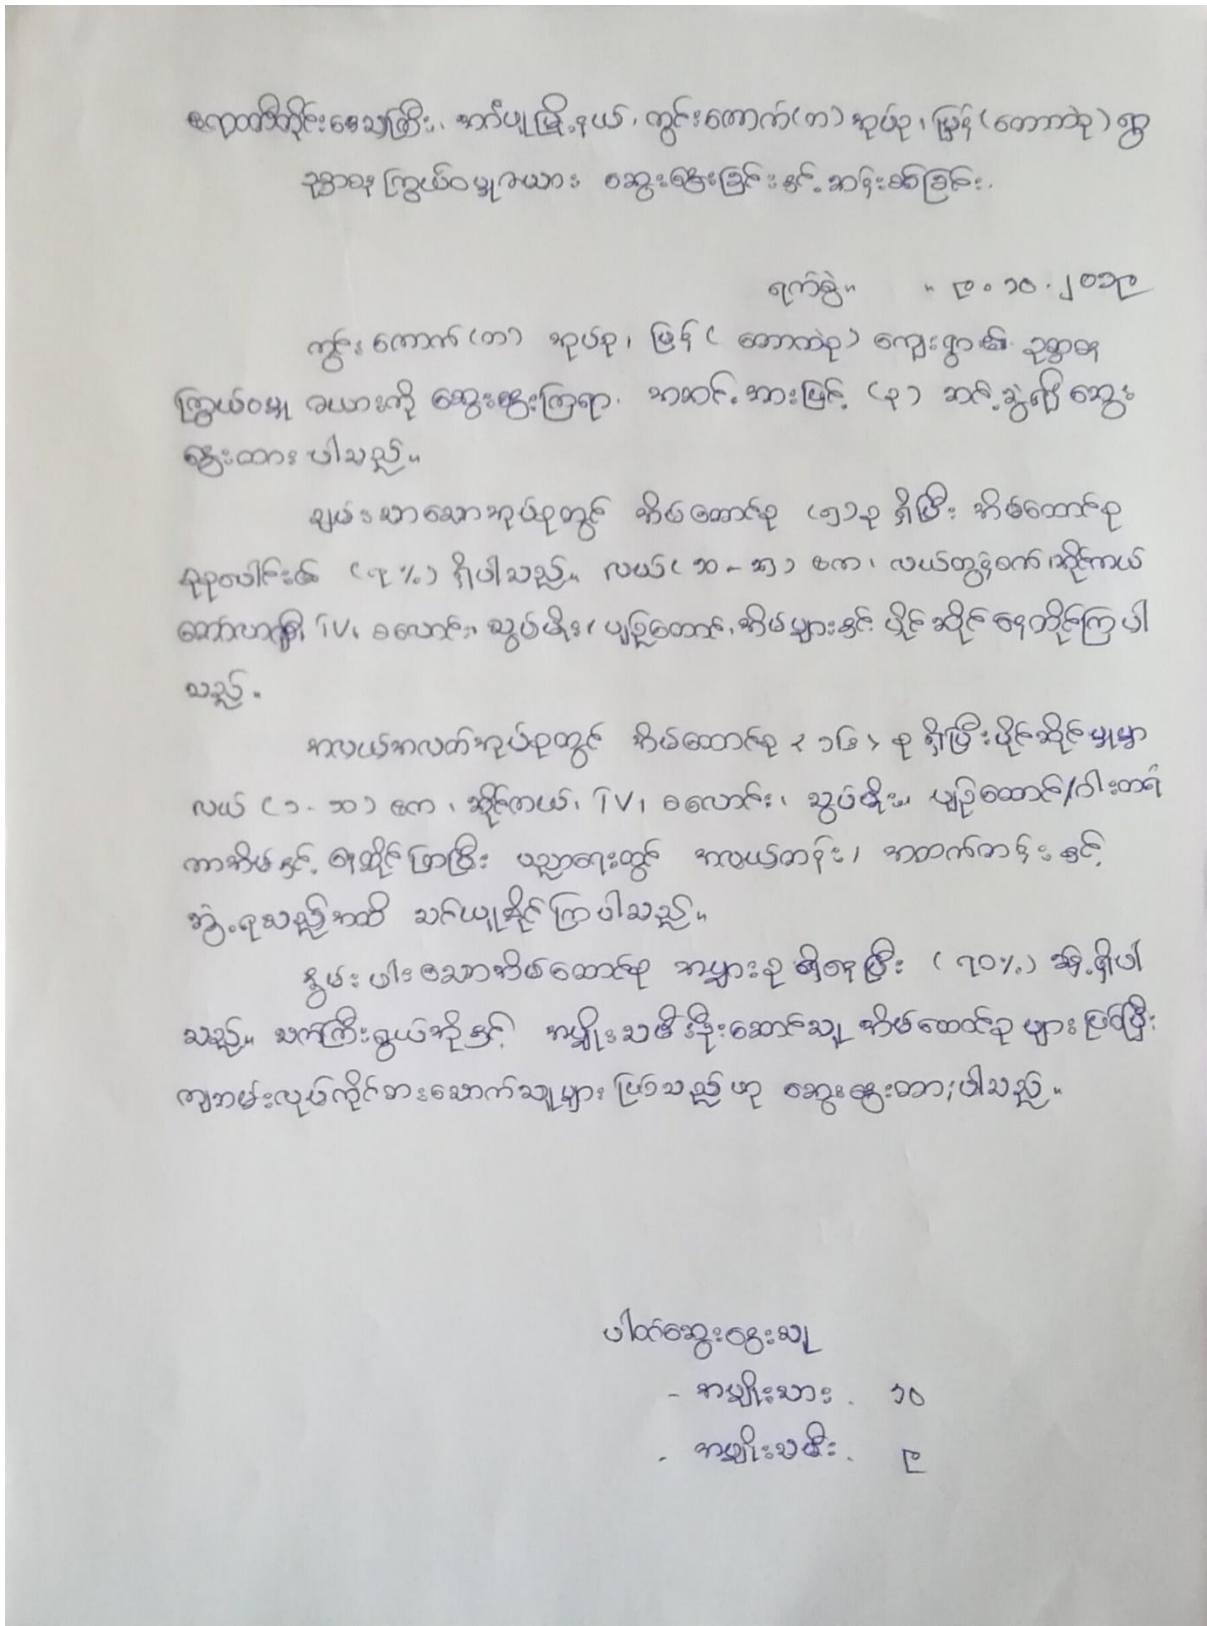 ဧရာဝတီတိုင်းဒေသကြီး၊ အင်္ဂပူမြို့နယ်၊ ကွင်းကောက်(တ) အုပ်စု၊ မြိန်(တောကဲစု) ရွာ
ဥစ္စာဓန ကြွယ်ဝမှုအယား ဆွေးနွေးခြင်းနှင့် ဆန်းစစ်ခြင်း.
ရက်စွဲ။ ။ ၉.၁၀.၂၀၁၉
ကွင်းကောက်(တ) အုပ်စု၊ မြိန် ( တောကဲစု) ကျေးရွာ၏ ဥစ္စာဓန
ကြွယ်ဝမှု အယားကို ဆွေးနွေးကြရာ. အဆင့်အားဖြင့် (၃) ဆင့်ခွဲ၍ ဆွေး
နွေးထားပါသည်။
ချမ်းသာသောအုပ်စုတွင် အိမ်ထောင်စု (၅)စု ရှိပြီး အိမ်ထောင်စု
စုစုပေါင်း၏ (၇%) ရှိပါသည်။ လယ်(၁၀-၁၅) ဧက၊ လယ်ထွန်စက်၊ ဆိုင်ကယ်
ဆော်လာ၊ TV၊ စလောင်း၊ သွပ်မိုး၊ ပျဉ်ထောင်အိမ်များနှင့် ပိုင်ဆိုင်နေထိုင်ကြပါ
သည်။
အလယ်အလတ်အုပ်စုတွင် အိမ်ထောင်စု (၁၆) စု ရှိပြီး ပိုင်ဆိုင်မှုမှာ
လယ် (၁-၁၀) ဧက၊ ဆိုင်ကယ်၊ TV၊ စလောင်း၊ သွပ်မိုး၊ ပျဉ်ထောင်/ဝါးထရံ
ကာအိမ်နှင့် နေထိုင်ကြပြီး ပညာရေးတွင် အလယ်တန်း၊ အထက်တန်းနှင့်
ဘွဲ့ရသည်အထိ သင်ယူနိုင်ကြပါသည်။
နွမ်းပါးသောအိမ်ထောင်စု အများစု ရှိနေပြီး (၇၀%) ခန့်ရှိပါ
သည်။ သက်ကြီးရွယ်အိုနှင့် အမျိုးသမီးဦးဆောင်သူ အိမ်ထောင်စုများ ဖြစ်ပြီး
ကျဘမ်းလုပ်ကိုင်စားသောက်သူများ ဖြစ်သည်ဟု ဆွေးနွေးထားပါသည်။
ပါဝင်ဆွေးနွေးသူ
- အမျိုးသား. ၁၀
- အမျိုးသမီး. ၉